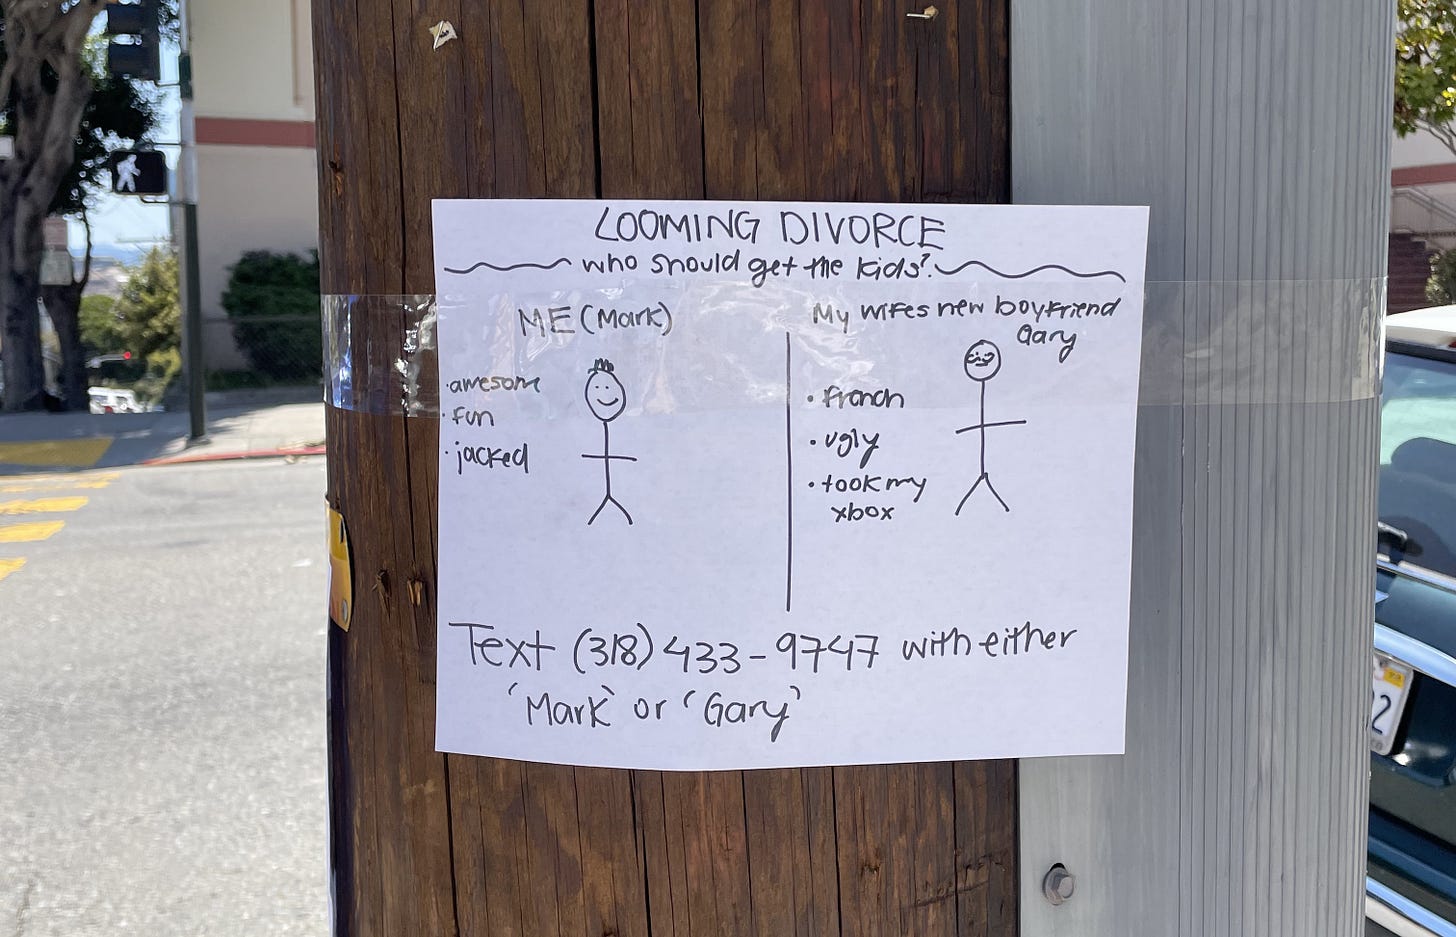 LOOMING DIVORCE
who should get the kids?
ME (Mark)
· awesome
· fun
· jacked
My wifes new boyfriend
Gary
· french
· ugly
· took my
xbox
Text (318) 433-9747 with either
'Mark' or 'Gary'
2